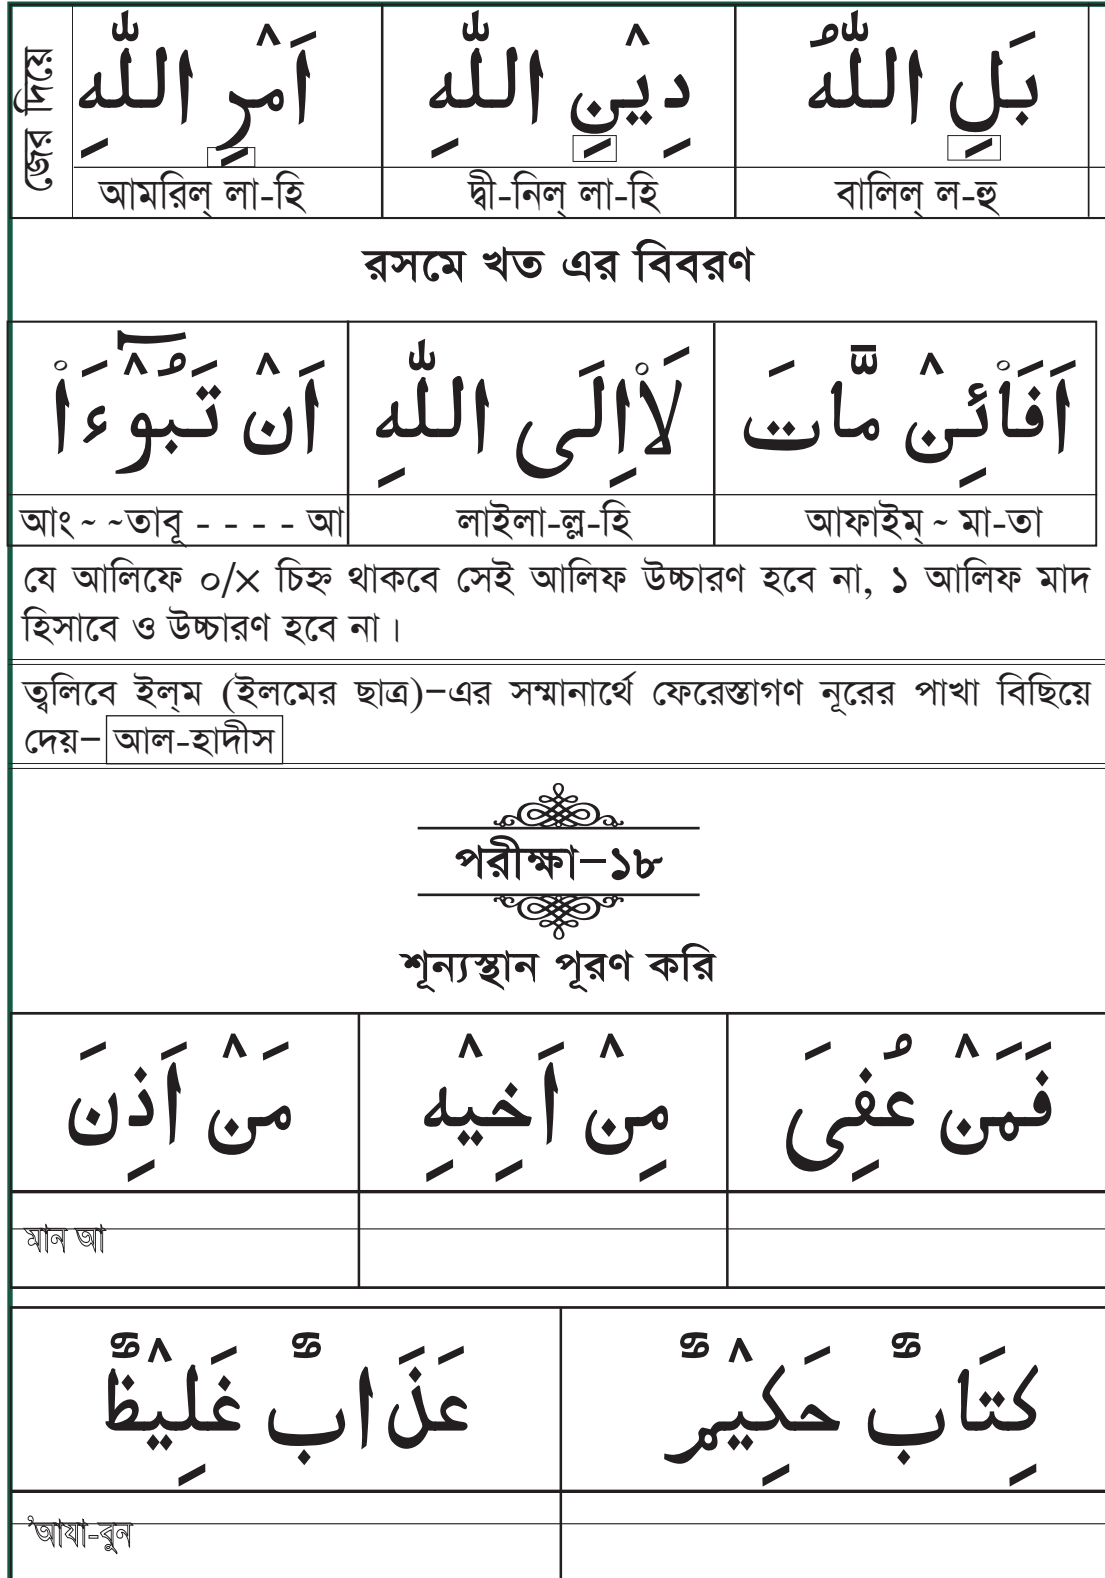 জের দিয়ে
بَلِ اللّٰهُ دِيْنِ اللّٰهِ اَمْرِ اللّٰهِ
আমরিল্ লা-হি দ্বী-নিল্ লা-হি বালিল্ ল-হু
রসমে খত এর বিবরণ
اَفَا۟ئِنْ مَّاتَ لَا۟اِلَى اللّٰهِ اَنْ تَبُوْٓءَا۟
আং ~ ~তাবূ - - - - আ লাইলা-ল্ল-হি আফাইম্ ~ মা-তা
যে আলিফে ০/× চিহ্ন থাকবে সেই আলিফ উচ্চারণ হবে না, ১ আলিফ মাদ
হিসাবে ও উচ্চারণ হবে না।
ত্বলিবে ইল্‌ম (ইলমের ছাত্র)–এর সম্মানার্থে ফেরেস্তাগণ নূরের পাখা বিছিয়ে
দেয়– আল-হাদীস
পরীক্ষা–১৮
শূন্যস্থান পূরণ করি
فَمَنْ عُفِىَ مِنْ اَخِيْهِ مَنْ اَذِنَ
মান আ
كِتَابٌ حَكِيْمٌ عَذَابٌ غَلِيْظٌ
‘আযা-বুন